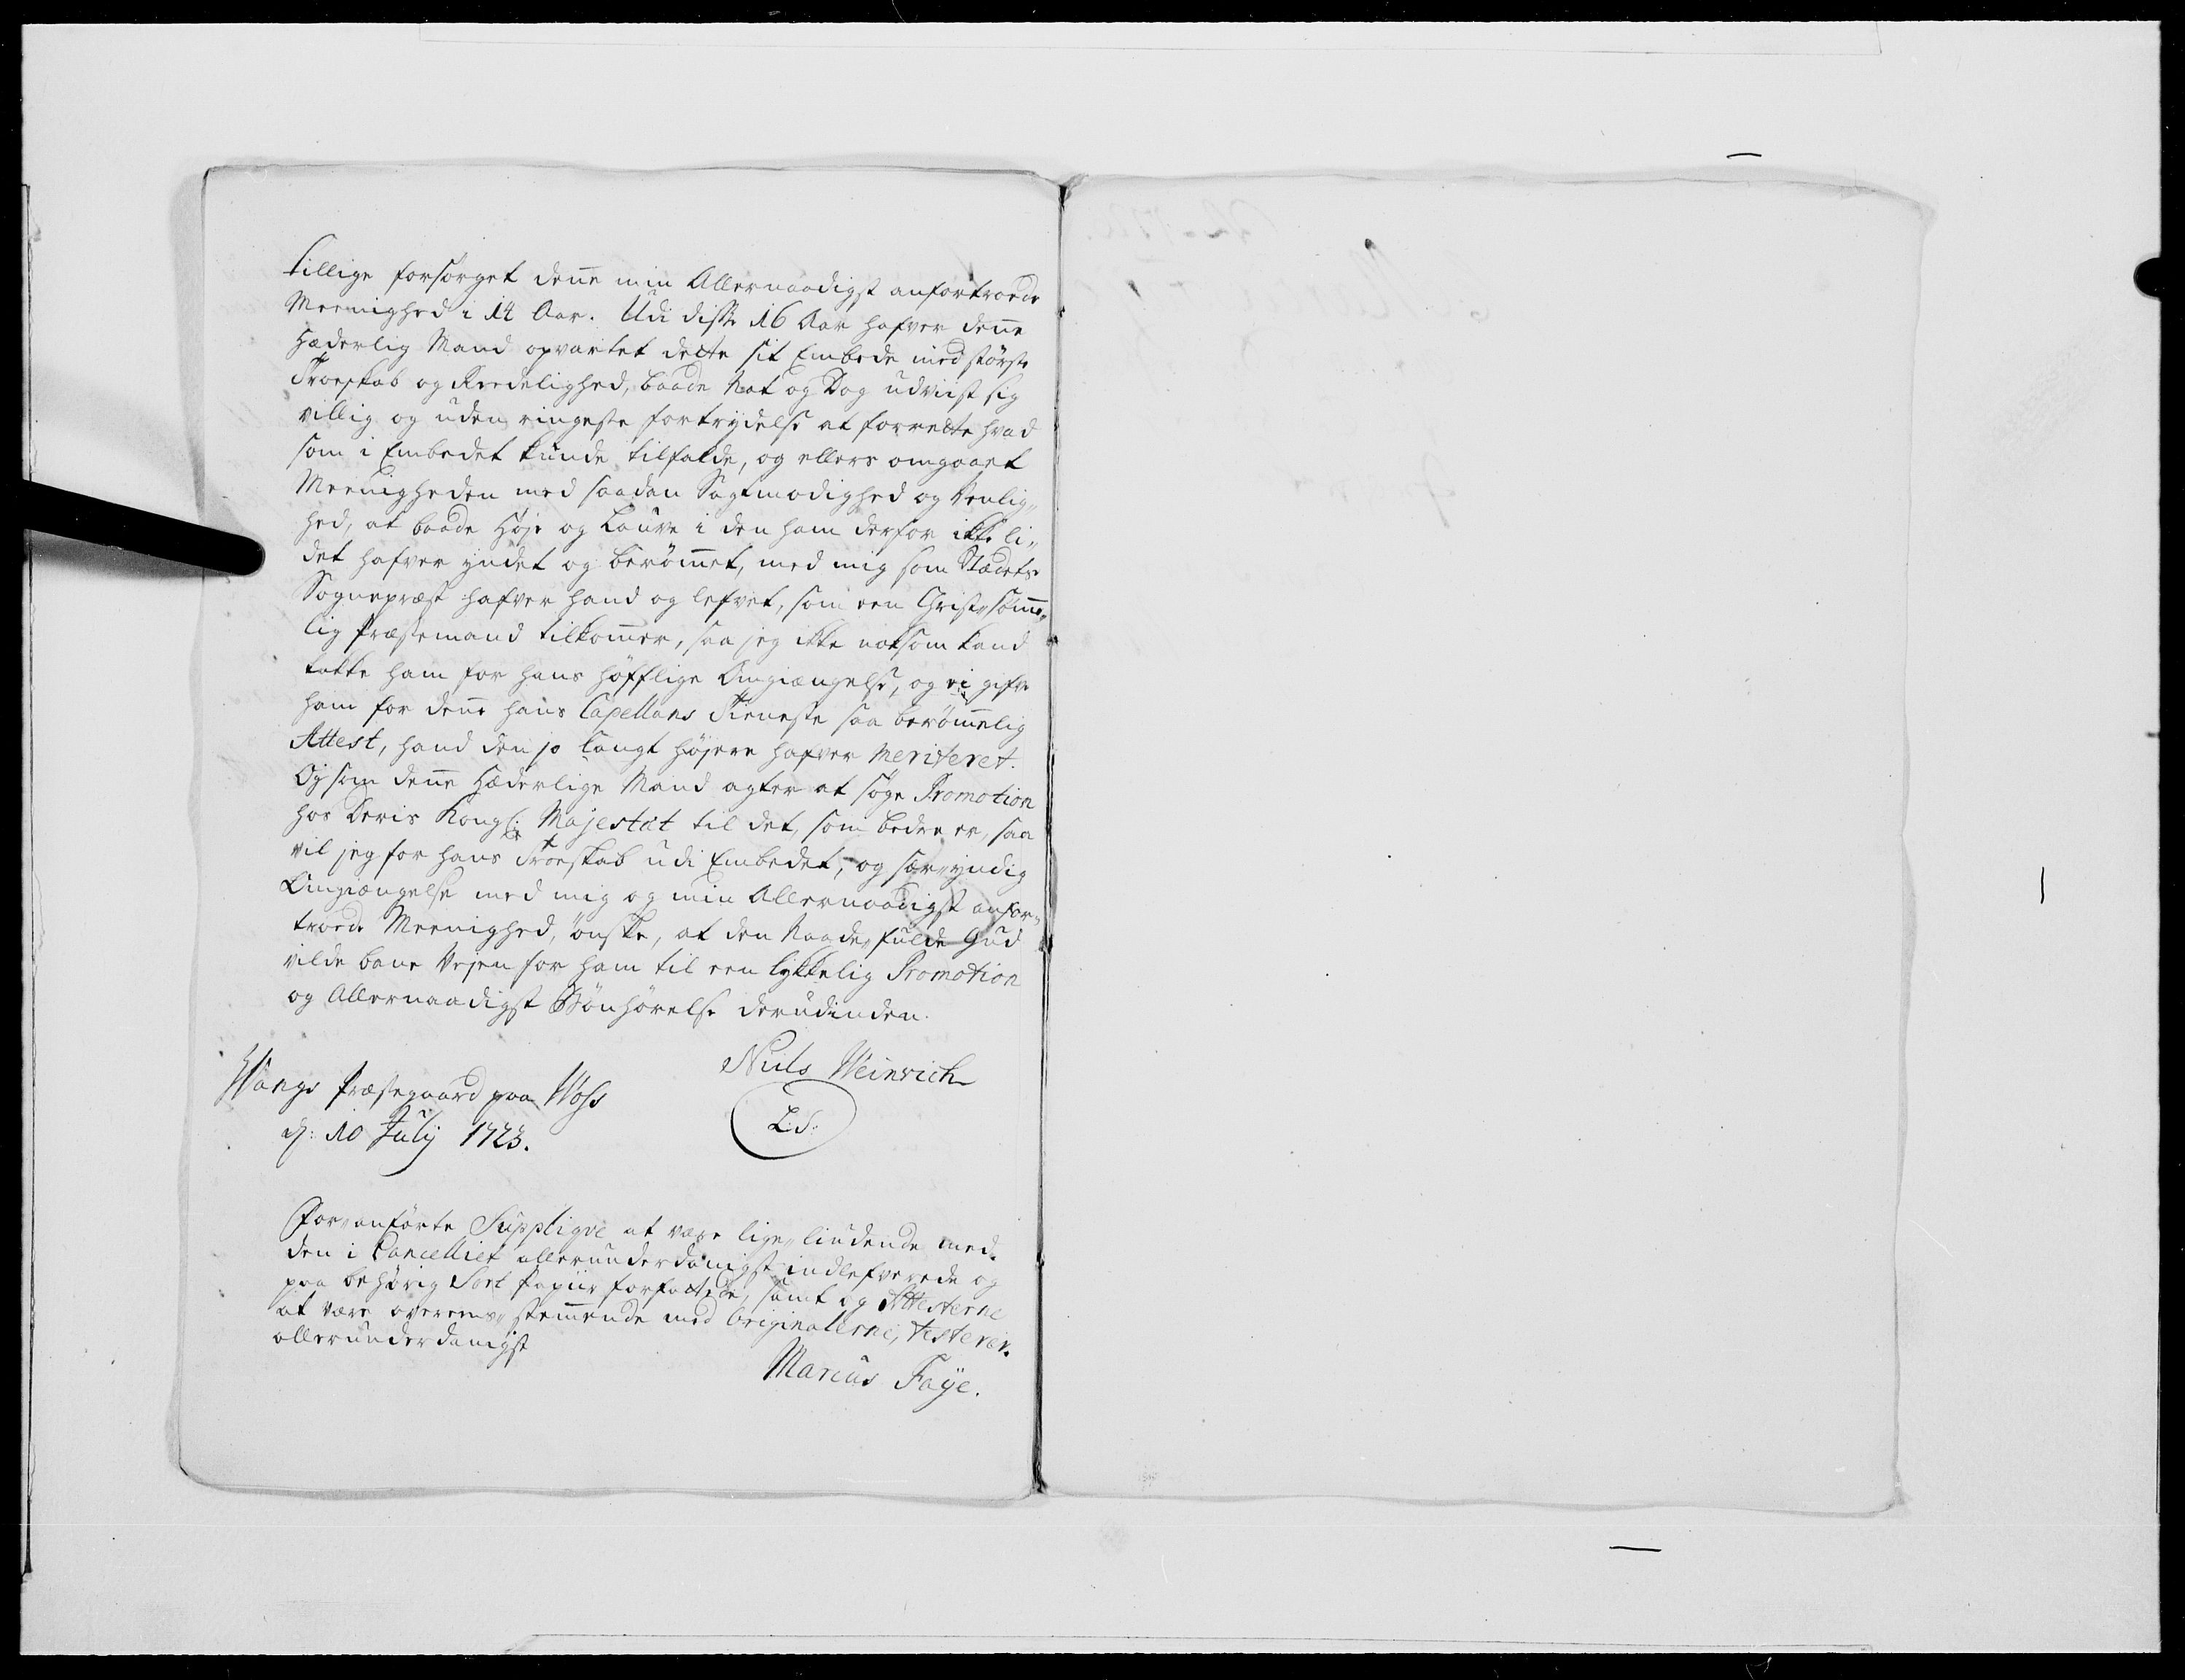 tillige forsörget deñe min Allernaadigst anfortroede
Meenighed i 14 Aar. Udi disse 16 Aar hafver deñe
Hæderlig Mand opvartet dette sit Embede med störste
Troeskab og Reedelighed, baade Nat og Dag udviist sig
villig og uden ringeste fortrydelse at forrette hvad
som i Embedet kunde tilfalde, og ellers omgaaet
Meenigheden med saadan Sagtmodighed og Venlig„
hed, at baade Høje og Lauve i den ham derfor ikke li„
det hafver yndet og berömet, med mig som Stædets
Sognepræst hafver hand og lefvet, som een Christ„sömme„
lig Præstemand tilkomer, saa jeg ikke noksom kand
takke ham for hans höfflige Omgiængelse, og ei gifve
ham for deñe hans Capellans Tieneste saa berömelig
Attest, hand den jo langt højere hafver meriteret.
Og som deñe Hæderlige Mand agter at söge Promotion
hos Deris Kongl: Majestät til det, som bedre er, saa
vil jeg for hans Troeskab udi Embedet, og sær„yndig
Omgiængelse med mig og min Allernaadigst anfor„
troede Meenighed, önske, at den Naade„fulde Gud
vilde bane Vejen for ham til een lykkelig Promotion
og Allernaadigst Bönhörelse derudinden.
Wangs Præstegaard paa Woss
d: 10 Julij 1723.
Niels Weinrich
L.S.
For„anförte Suppliqve at være lige„liudende med
den i Cancelliet allerunderdanigst indlefverede og
paa behörig Sort Papiir forfattede, samt og Attesterne
at være overeens„stemende med Originalerne, testerer.
allerunderdanigst
Marcus Faÿe.